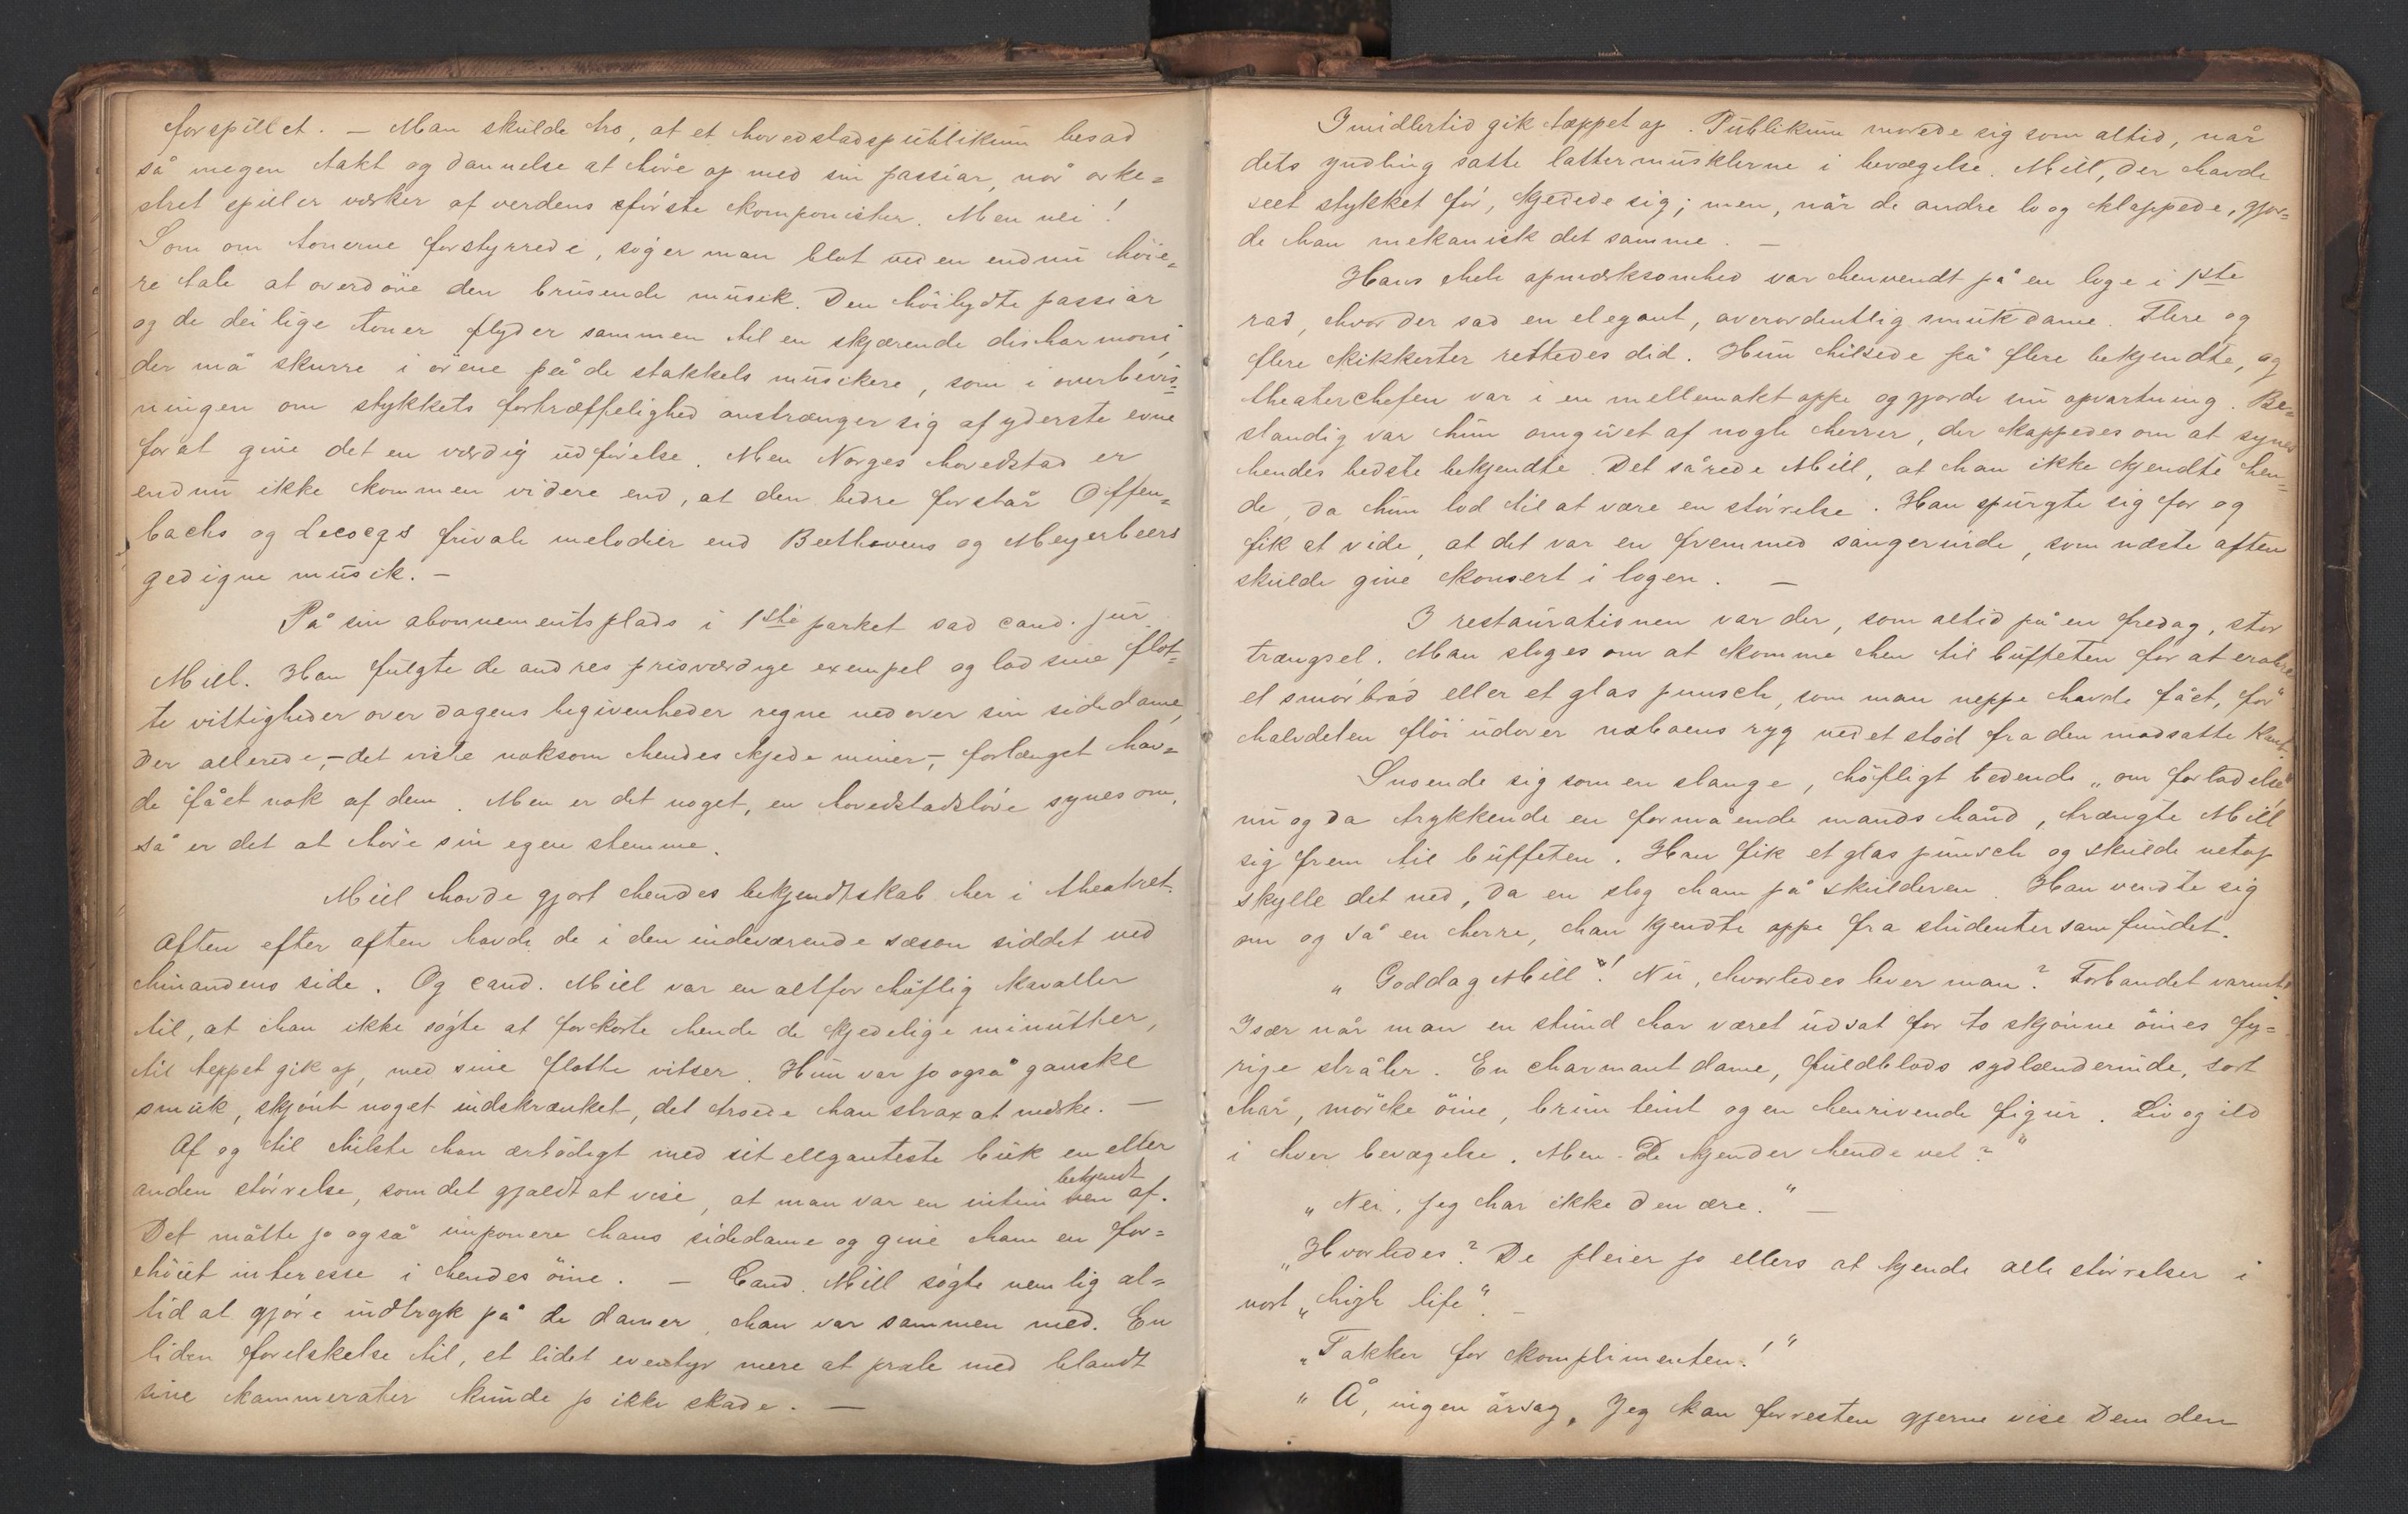 forspillet. — Man skulde tro, at et hovedstadspublikum besad
så megen takt og dannelse at høre op med sin passiar, når orke=
stret spiller værker af verdens første komponister. Men nei!
Som om tonerne forstyrrede, søger man blot ved en endnu høie=
re tale at overdøve den brusende musik. Den høilydte passiar
og de deilige toner flyder sammen til en skjærende disharmoni,
der må skurre i ørene på de stakkels musikere, som i overbevis=
ningen om stykkets fortræffelighed anstrænger sig af yderste evne
for at give det en værdig udførelse. Men Norges hovedstad er
endnu ikke kommen videre end, at den bedre forstår Offen=
bachs og Lecocqs frivole melodier end Beethovens og Meyerbeers
gedigne musik. —
På sin abonnementsplads i 1ste parket sad cand. jur.
Mill. Han fulgte de andres prisværdige exempel og lod sine flot=
te vittigheder over dagens begivenheder regne ned over sin sidedame,
der allerede, – det viste noksom hendes kjede miner, – forlænget hav=
de fået nok af dem. Men er det noget, en hovedstadsløve synes om,
så er det at høre sin egen stemme.
Mill havde gjort hendes bekjendtskab her i theatret.
Aften efter aften havde de i den indeværende sæson siddet ved
hinandens side. Og cand. Mill var en altfor høflig kavaller
til, at han ikke søgte at forkorte hende de kjedelige minutter,
til teppet gik op, med sine flotte vitser. Hun var jo også ganske
smuk, skjønt noget indskrænket, det troede han strax at mærke. —
Af og til hilste han ærbødigt med sit elleganteste buk en eller
anden størrelse, som det gjældt at vise, at man var en intim ven bekjendt af.
Det måtte jo også imponere hans sidedame og give ham en for=
høiet interesse i hendes öine. — Cand. Mill søgte nemlig al=
tid at gjøre indtryk på de damer, han var sammen med. En
liden forelskelse til, et lidet eventyr mere at prale med blandt
sine kammerater kunde jo ikke skade. —
Imidlertid gik tæppet op. Publikum morede sig som altid, når
dets yndling satte lattermusklerne i bevægelse. Mill, der havde
seet stykket før, kjedede sig; men, når de andre lo og klappede, gjor=
de han mekanisk det samme. —
Hans hele opmærksomhed var henvendt på en loge i 1ste
rad, hvor der sad en elegant, overordentlig smuk dame. Flere og
flere kikkerter rettedes did. Hun hilsede på flere bekjendte, og
theaterchefen var i en mellemakt oppe og gjorde sin opvartning. Be=
standig var hun omgivet af nogle herrer, der kappedes om at synes
hendes bedste bekjendte. Det sårede Mill, at han ikke kjendte hen=
de, da hun lod til at være en størrelse. Han spurgte sig for og
fik at vide, at det var en fremmed sangerinde, som næste aften
skulde give konsert i logen. —
I restaurationen var der, som altid på en fredag, stor
trængsel. Man sloges om at komme hen til buffeten for at erobre
et smørbrød eller et glas punsch, som man neppe havde fået, før
halvdelen fløi udover naboens ryg ved et stød fra den modsatte kant.
Snoende sig som en slange, høfligt bedende „om forladelse",
nu og da trykkende en formående mands hånd, trængte Mill
sig frem til buffeten. Han fik et glas punsch og skulde netop
skylle det ned, da en slog ham på skulderen. Han vendte sig
om og så en herre, han kjendte oppe fra studentersamfundet.
„Goddag Mill! Nu, hvorledes lever man? Forbandet varmt!
Især når man en stund har været udsat for to skjønne öines fy=
rige stråler. En charmant dame, fuldblods sydlænderinde, sort
hår, mørke öine, brun teint og en henrivende figur. Liv og ild
i hver bevægelse. Men De kjender hende vel?"
„Nei, jeg har ikke den ære." —
„Hvorledes? De pleier jo ellers at kjende alle størrelser i
vort „high life". —
„Takker for komplimenten!"
„Å, ingen årsag. Jeg kan forresten gjerne vise Dem den